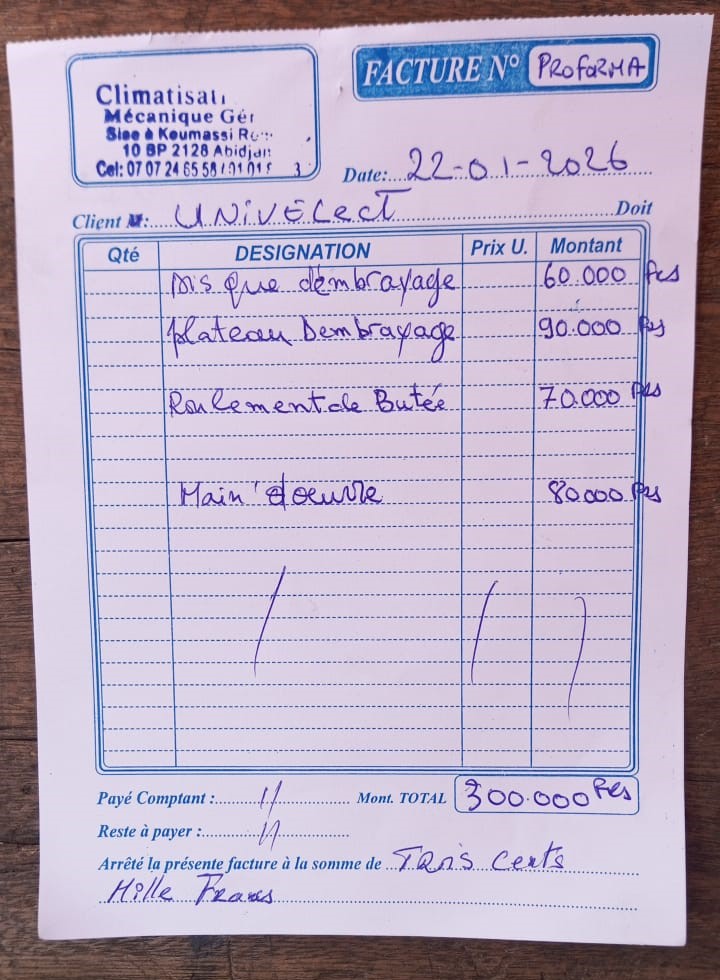 Climatisati
Mécanique Gér
Sise à Koumassi
10 BP 2128 Abidjan
Cel: 07 07 24 65 58 / 01 01
FACTURE N° PROFORMA
Date: 22-01-2026
Client M: UNIVELECT Doit
Qté DESIGNATION Prix U. Montant
Disque d'embrayage 60.000 Frs
plateau Dembrayage 90.000 Frs
Roulement de Butée 70.000 Frs
Main'doeuvre 80000 Frs
Payé Comptant : // Mont. TOTAL 300.000 Frs
Reste à payer : //
Arrêté la présente facture à la somme de Trois Cents
Mille Francs